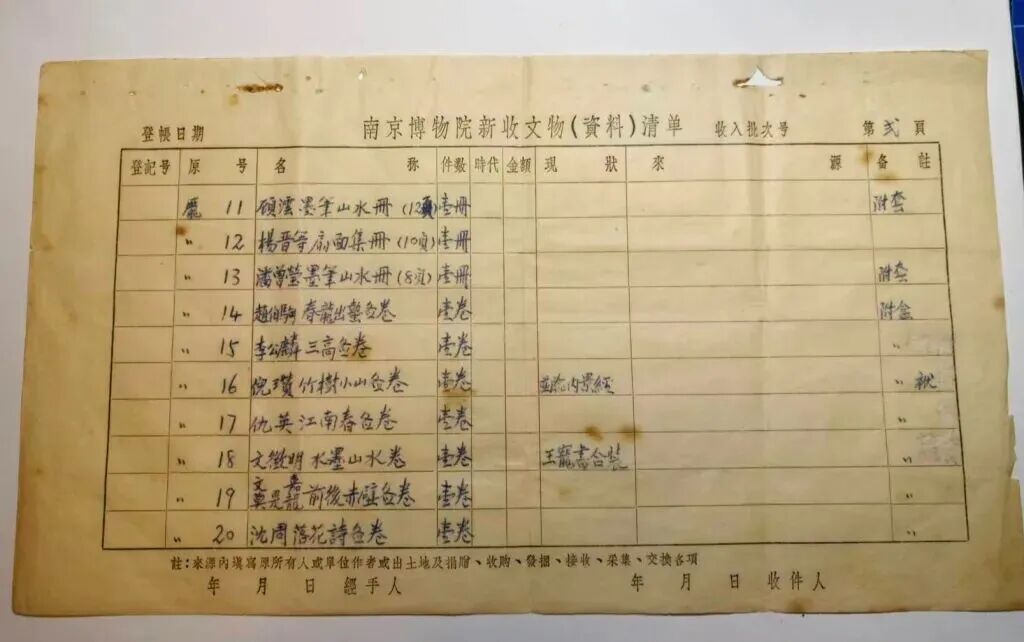 登帳日期 南京博物院新收文物(資料)清单 收入批次号 第 弍 頁
登記号 原号 名稱 件数 時代 金額 現狀 來源 备註
龐 11 顧澐墨筆山水冊(12頁) 壹冊 附套
〃 12 楊晋等扇面集冊(10頁) 壹冊
〃 13 潘曾瑩墨筆山水冊(8頁) 壹冊 附套
〃 14 趙伯駒春龍出蟄啚卷 壹卷 附盒
〃 15 李公麟三高啚卷 壹卷 〃
〃 16 倪瓚竹樹小山啚卷 壹卷 内景經 〃
〃 17 仇英江南春啚卷 壹卷 〃
〃 18 文徵明水墨山水卷 壹卷 王寵書合裝 〃
〃 19 文嘉 莫是龍 前後赤壁啚卷 壹卷 〃
〃 20 沈周落花詩啚卷 壹卷 〃
註:來源內填寫原所有人或單位作者或出土地及捐贈、收购、發掘、接收、采集、交換各項
年 月 日 經手人 年 月 日 收件人